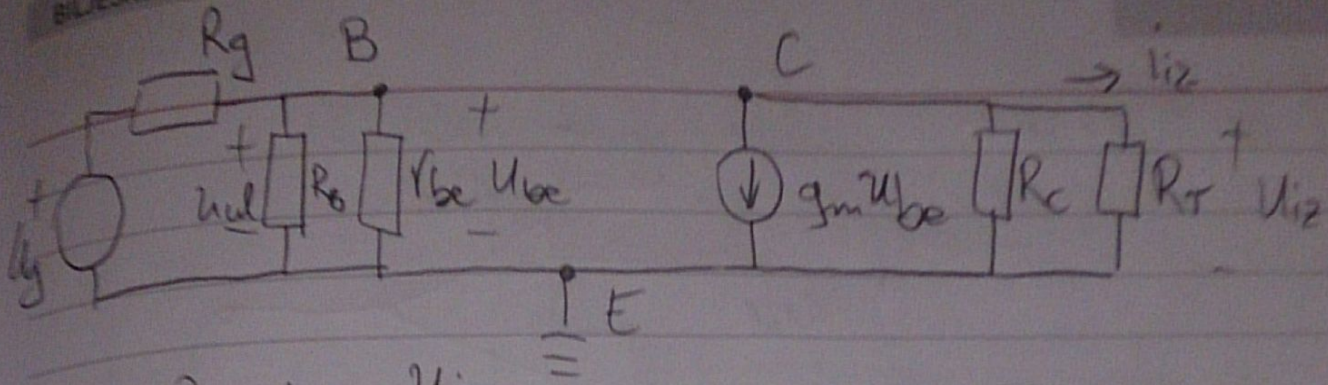 Rg B C iiz
+ + + +
Ug uul RB rbe Ube gmUbe RC RT Uiz
- -
E